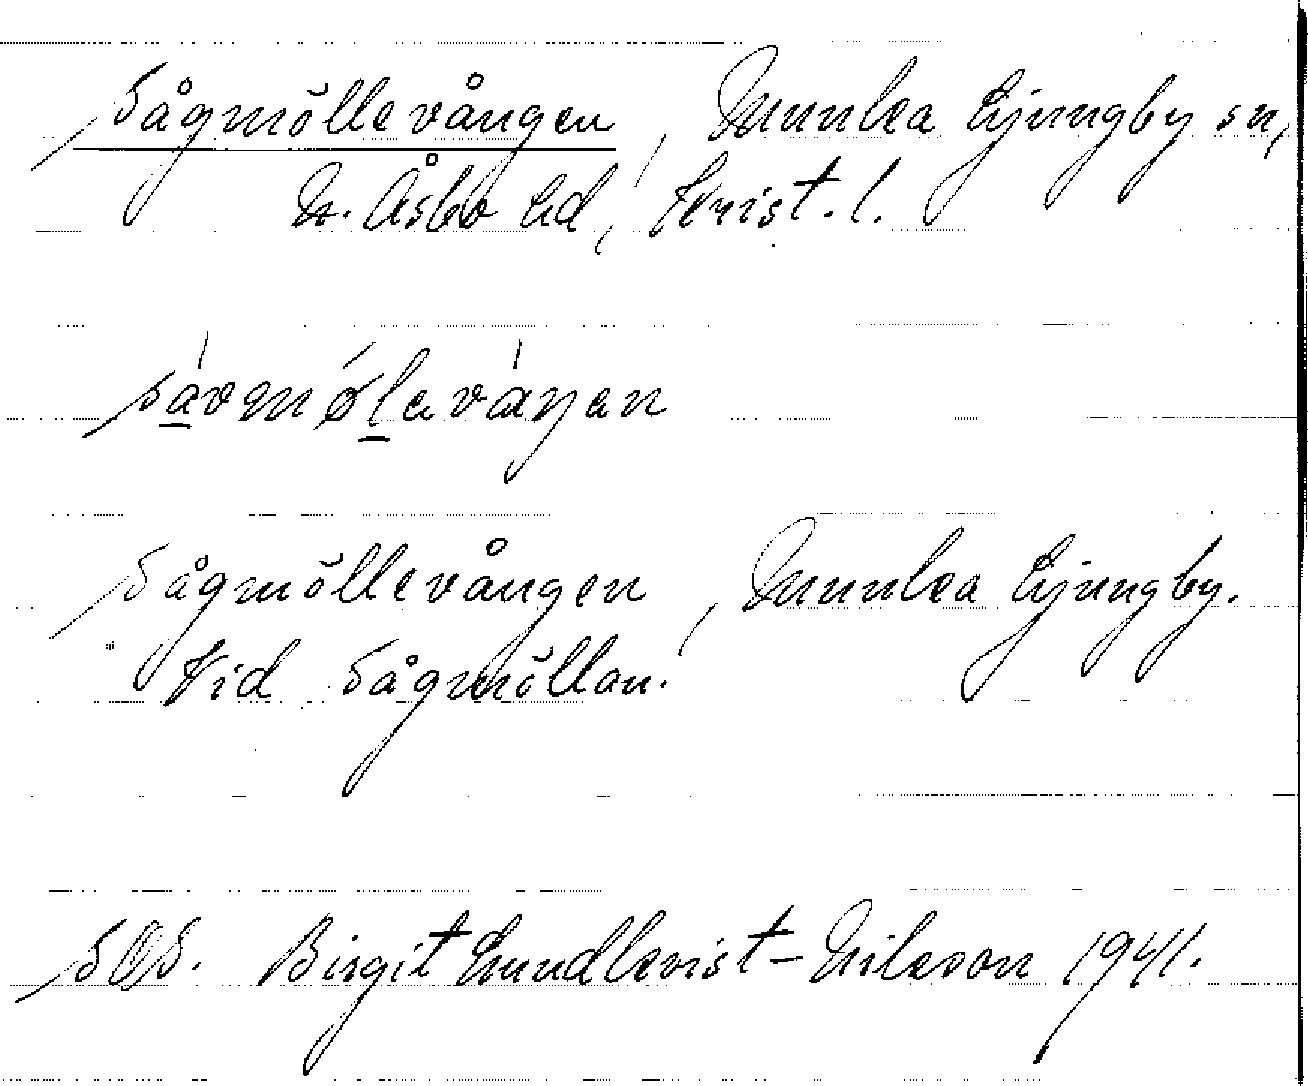 Sågmöllevången, Munka Ljungby sn,
N. Åsbo hd, Krist. l.
sàvmǿlevàŋen
Sågmöllevången, Munka Ljungby.
Vid Sågmöllan.
SOS. Birgit Lundkvist-Nilsson 1941.